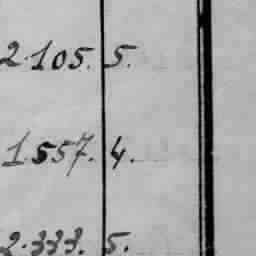 2.105. 5.
1.557. 4.
2.333. 5.